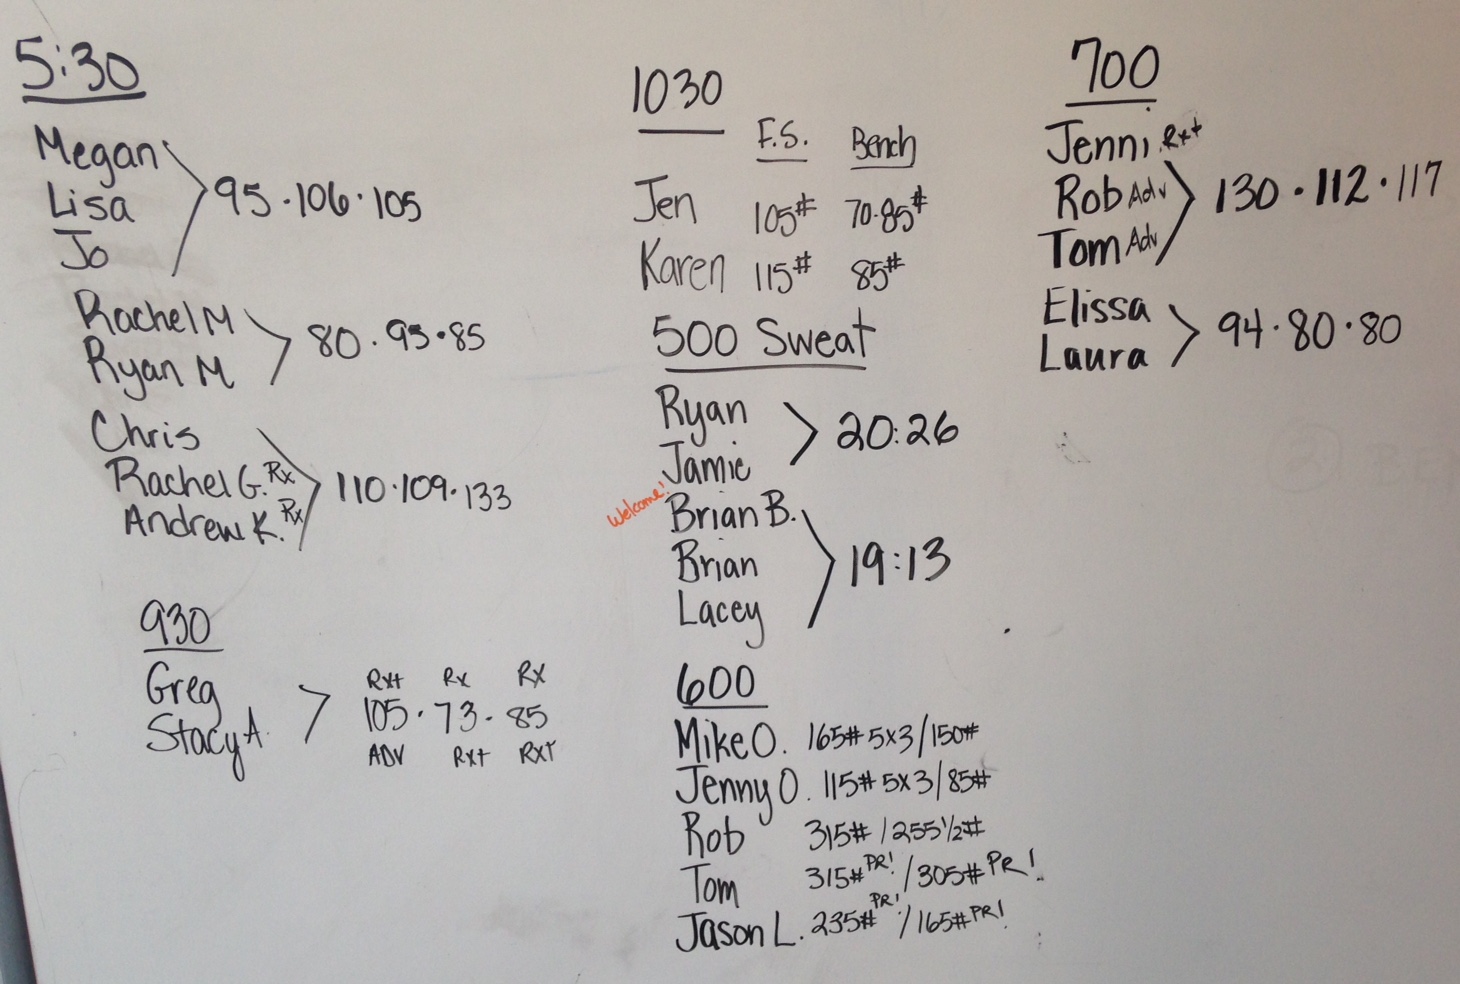 5:30
Megan
Lisa
Jo
95 · 106 · 105
Rachel M
Ryan M
80 · 95 · 85
Chris
Rachel G. Rx
Andrew K. Rx
110 · 109 · 133
930
Greg
Stacy A.
Rx+ Rx Rx
105 · 73 · 85
ADV Rx+ Rx+
1030
F.S. Bench
Jen 105# 70-85#
Karen 115# 85#
500 Sweat
Ryan
Jamie
20:26
Welcome!
Brian B.
Brian
Lacey
19:13
600
Mike O. 165# 5x3/150#
Jenny O. 115# 5x3/85#
Rob 315# / 255½#
Tom 315# PR! / 305# PR!
Jason L. 235# PR! / 165# PR!
700
Jenni Rx+
Rob Adv
Tom Adv
130 · 112 · 117
Elissa
Laura
94 · 80 · 80